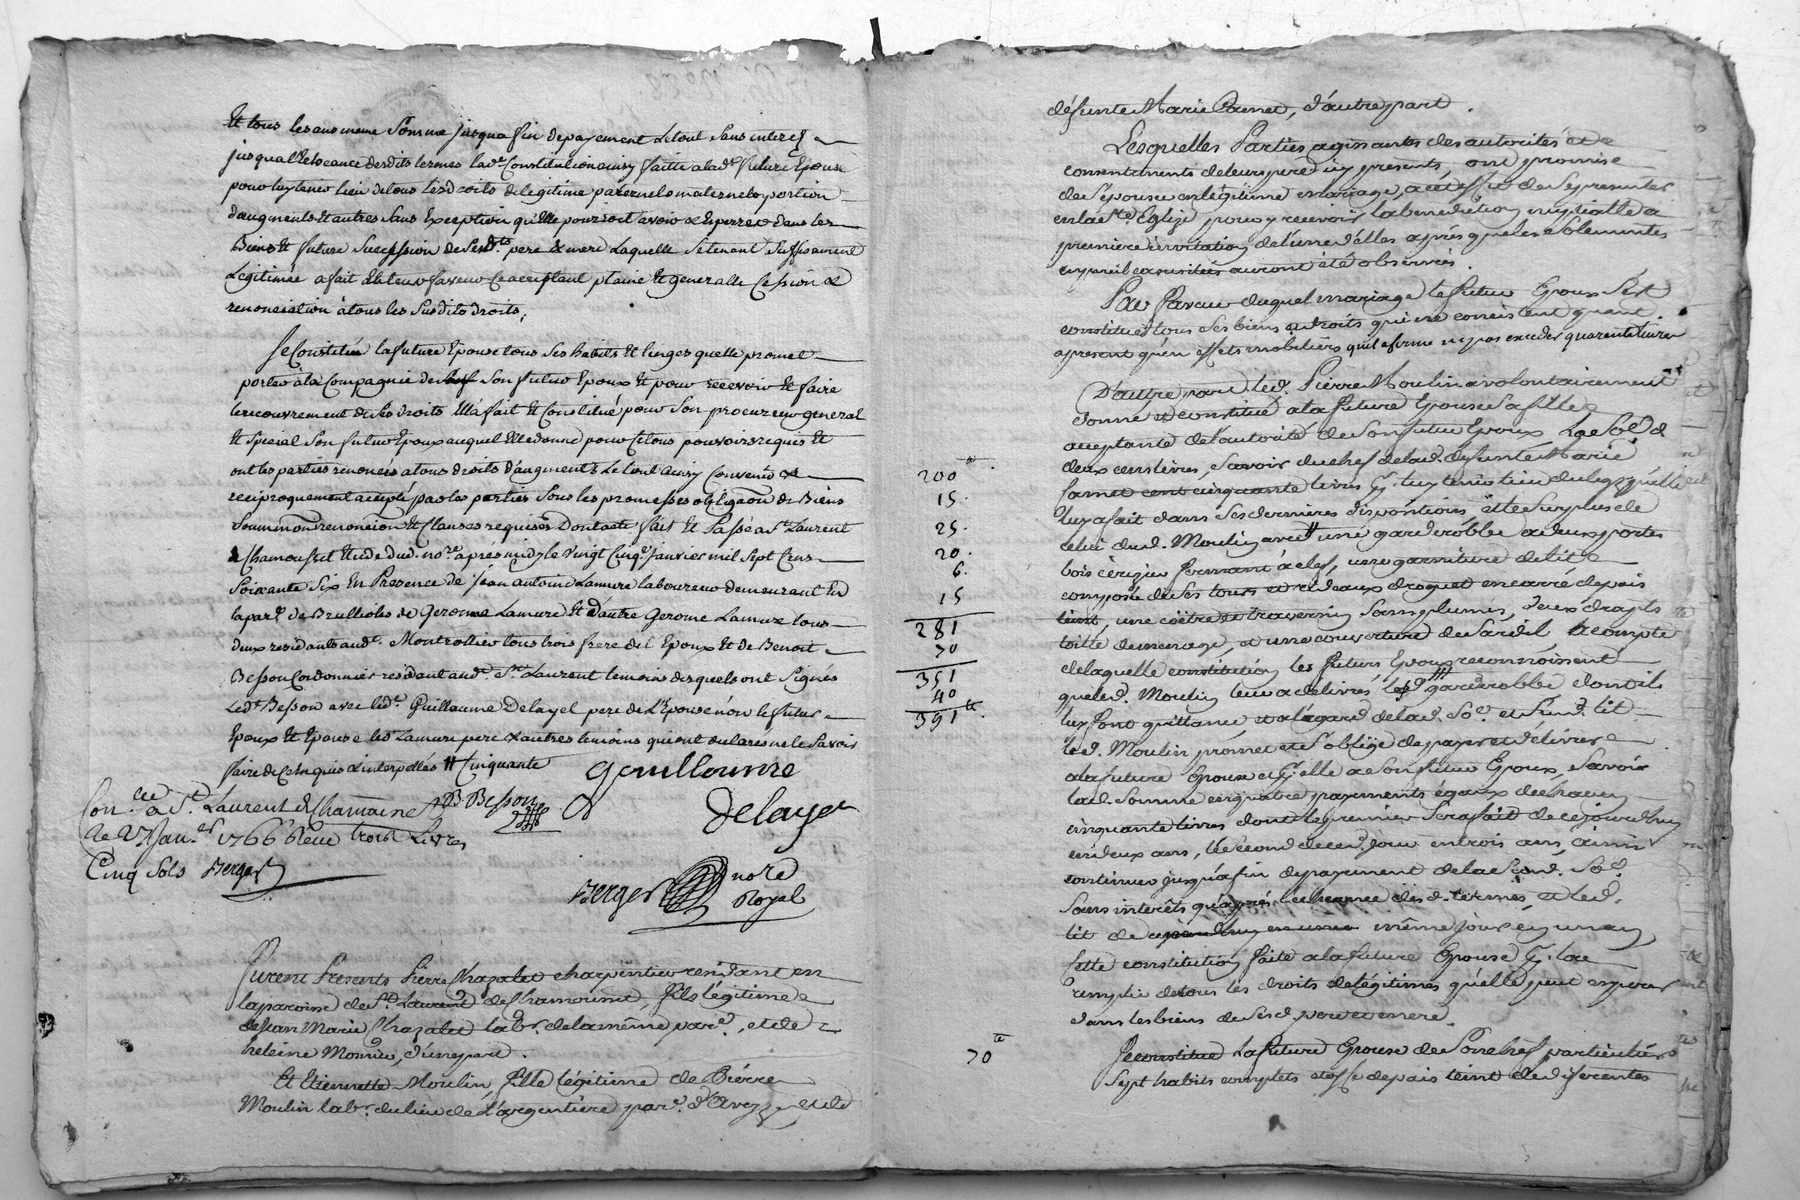 Et tous les ans meme Somme jusqua fin de payement Letout Sans interest
jusqual'Echeance desdits termes lad.e Constitution ainsy faitte alad.e future Epouse
pour luy tenir lieu de tous les droits de légitime paternels maternels portion
daugments Et autres Sans Exception qu'elle pourroit avoir & Esperer dans les
Biens Et future Succession de Sesd.ts pere & mere Laquelle Se tenant Suffisament
Légitimée a fait Et leur faveur Ce acceptant plaine Et generalle Cession &
renonciation à tous les Susdits droits;
Se Constitüe la future Epouse tous Ses habits Et linges quelle promet
porter à la Compagnie de Son futur Epoux Et pour recevoir Et faire
le recouvrement de Ses droits Ella fait Et Constitué pour Son procureur general
Et Special Son futur Epoux auquel Elle donne pour Ce tous pouvoirs requis Et
ont les parties renoncés a tous droits d'augments Le tout ainsy Convenu &
reciproquement accepté par les parties Sous les promesses obligaon de Biens
Soumission renonciaon Et Clauses requises Dont acte fait Et Passé a St. Laurent
de Chamousset Etude dud. no.re après midy le Vingt Cinq.e janvier mil Sept Cens
Soixante Six En Presence de Jean antoine Lamure laboureur demeurant En
la par.e de Brullioles de Gerome Lamure Et d'autre Gerome Lamure tous
deux residants aud.t Montrottier tous trois frere del Epoux Et de Benoit
Besson Cordonnier résidant aud.t St. Laurent temoins desquels ont Signés
Led.t Besson avec led.t Guillaume Delayel pere de L'Epouse non le futur
Epoux Et Epouse led. Lamure pere & autres temoins qui ont declares ne le Savoir
faire de Ce Enquis & interpellés # Cinquante
B Besson
Delaye
Con.lle a St. Laurent de Chamousset
Le 27 Jan.er 1766 Reçu trois Livres
Cinq Sols Berger
Berger no.re Royal
Furent Presents Pierre Chazalet charpentier residant en
la paroisse de St. Laurent de Chamousset, fils légitime
de Jean Marie Chazalet lab.r de la même par.e, et de
heleine Monnier, d'une part.
Et Etiennette Moulin fille légitime de Pierre
Moulin lab.r du lieu de L'argentière par.e d'Aveyze et de
défunte Marie Carret, d'autre part.
Lesquelles Parties agissants des autorités et
consentements de leurs père icy presents, ont promise
de S'épouser en légitime mariage, à cet effet de Se presenter
en la Ste Eglize pour y recevoir la bénédiction nuptialle a
première invitation de l'une d'elles après que les Solemnites
en pareil cas usitées auront été observées.
En Faveur duquel mariage le futur Epoux S'est
constitué tous Ses biens et droits qui ne consistent quant
apresent qu'en effets mobiliers quil afirme ne pas exceder quarente livres
D'autre part led. Pierre Moulin a volontairement
donné et constitué a la future Epouse Sa fille
acceptante de l'autorité de Son futur Epoux La So.e de
deux cens livres, Savoir du chef de lad. defunte Marie
Carret cent cinquante livres p. luy tenir lieu du legs qu'elle
luy a fait dans Ses dernieres dispositions et le Surplus de
celui dud. Moulin avec # une garderobbe a deux portes
bois cerizier fermant à clef, une garniture de lit
composée de Ses tours et rideaux droguet encarré depais
teint, une coëtre et traversin Sans plumes, deux drapts
toille de menage, et une couverture de Sardil A compte
de laquelle constitution les futurs Epoux reconnoissent
que led. Moulin leur a délivrés lad. garderobbe dont ils
luy font quittance et a l'égard de lad. So.e et Surd. lit
led. Moulin promet et S'oblige de payer et delivrer
a la future Epouse et p. elle a Son futur Epoux, Savoir
lad. Somme en quatre payements égaux de chacun
cinquante livres dont le premier Sera fait de ce jourd'huy
en deux ans, le Second de ced. jour en trois ans, ainsi
continuer jusqu'a fin de payement de lad. So.e
Sans interêts qu'après l'echeance desd. termes, et led.
lit de même jour en un an
Cette constitution faite a la future Epouse p. lui
remplir de tous les droits de légitimes qu'elle peut esperer
dans les biens de Sesd. pere et mere.
Se constitue La future Epouse de Son chef particulier
Sept habits complets etoffe depais teint de differentes
200tt.
15.
25.
20.
6.
15
281
70
351
40
391tt.
70tt